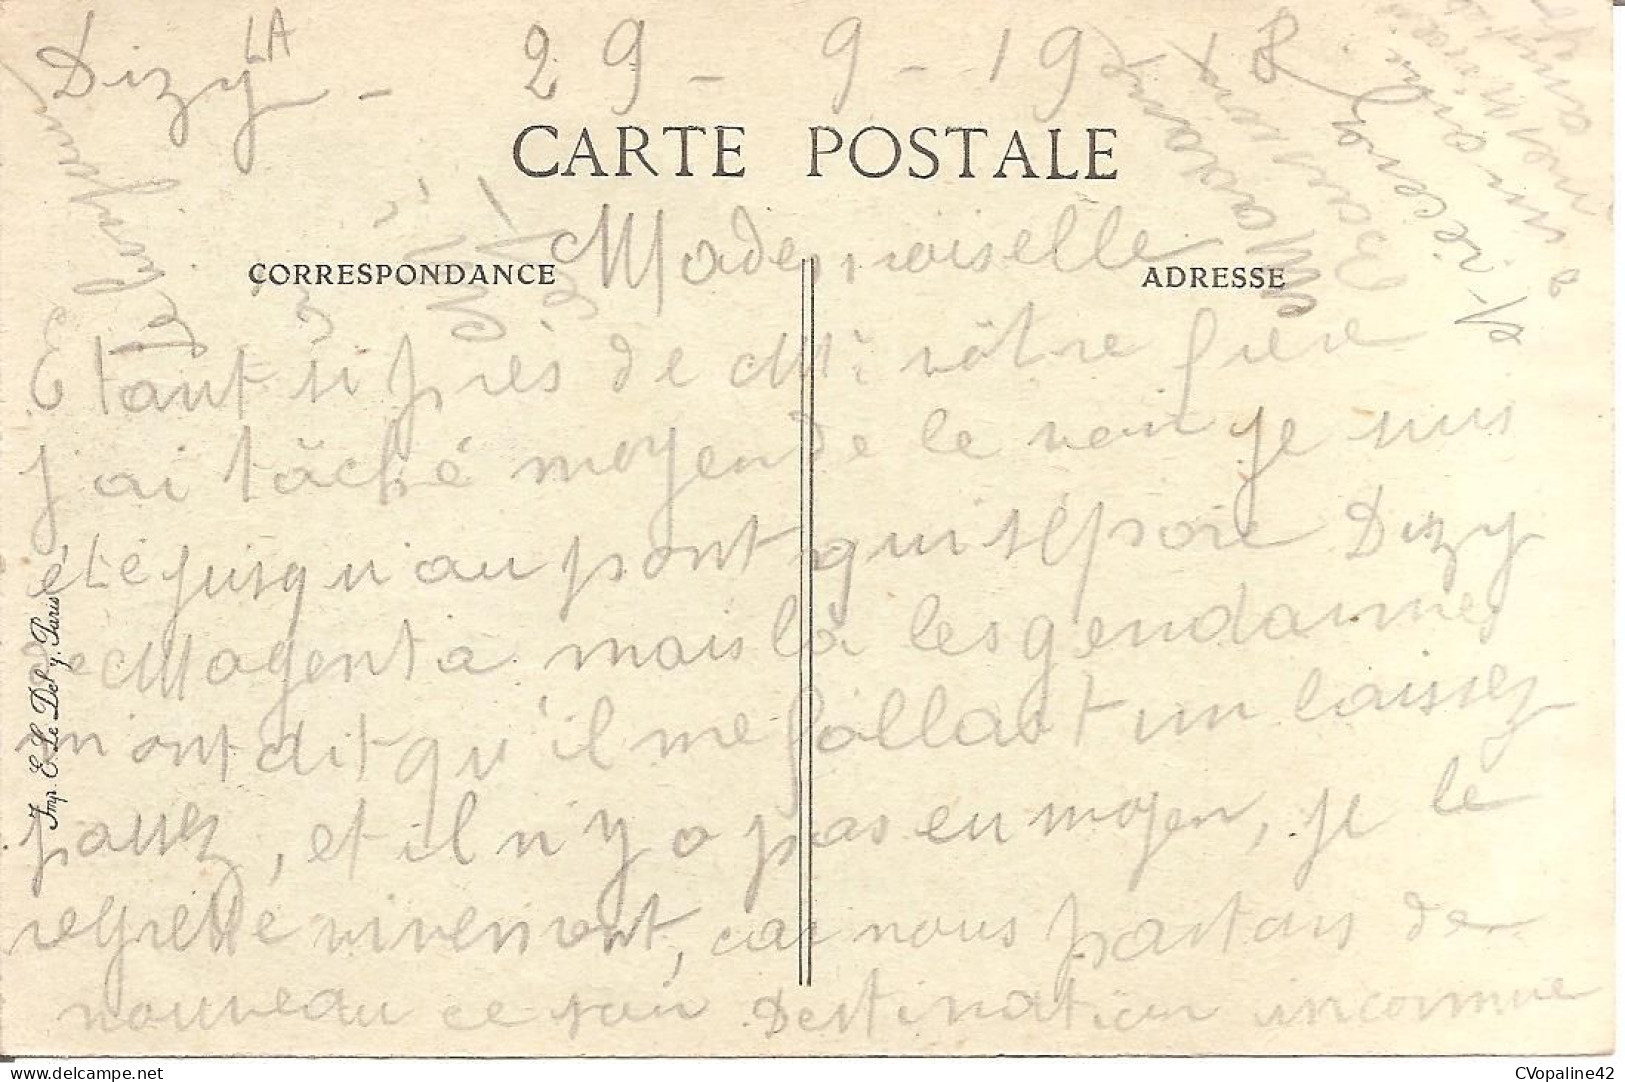 Dizy - 29 - 9 - 1918
LA
CARTE POSTALE
CORRESPONDANCE
ADRESSE
Mademoiselle
Etant si près de Mr vôtre frere
j'ai tâché moyen de le voir je suis
été jusqu'au pont qui sépare Dizy
de Magenta mais là les gendarmes
m'ont dit qu'il me fallait un laissez
passez, et il n'y a pas eu moyen, je le
regretté vivement, car nous partons de
nouveau ce soir Destination inconnue
Imp. E. Le Deley, Paris
CVopaline42